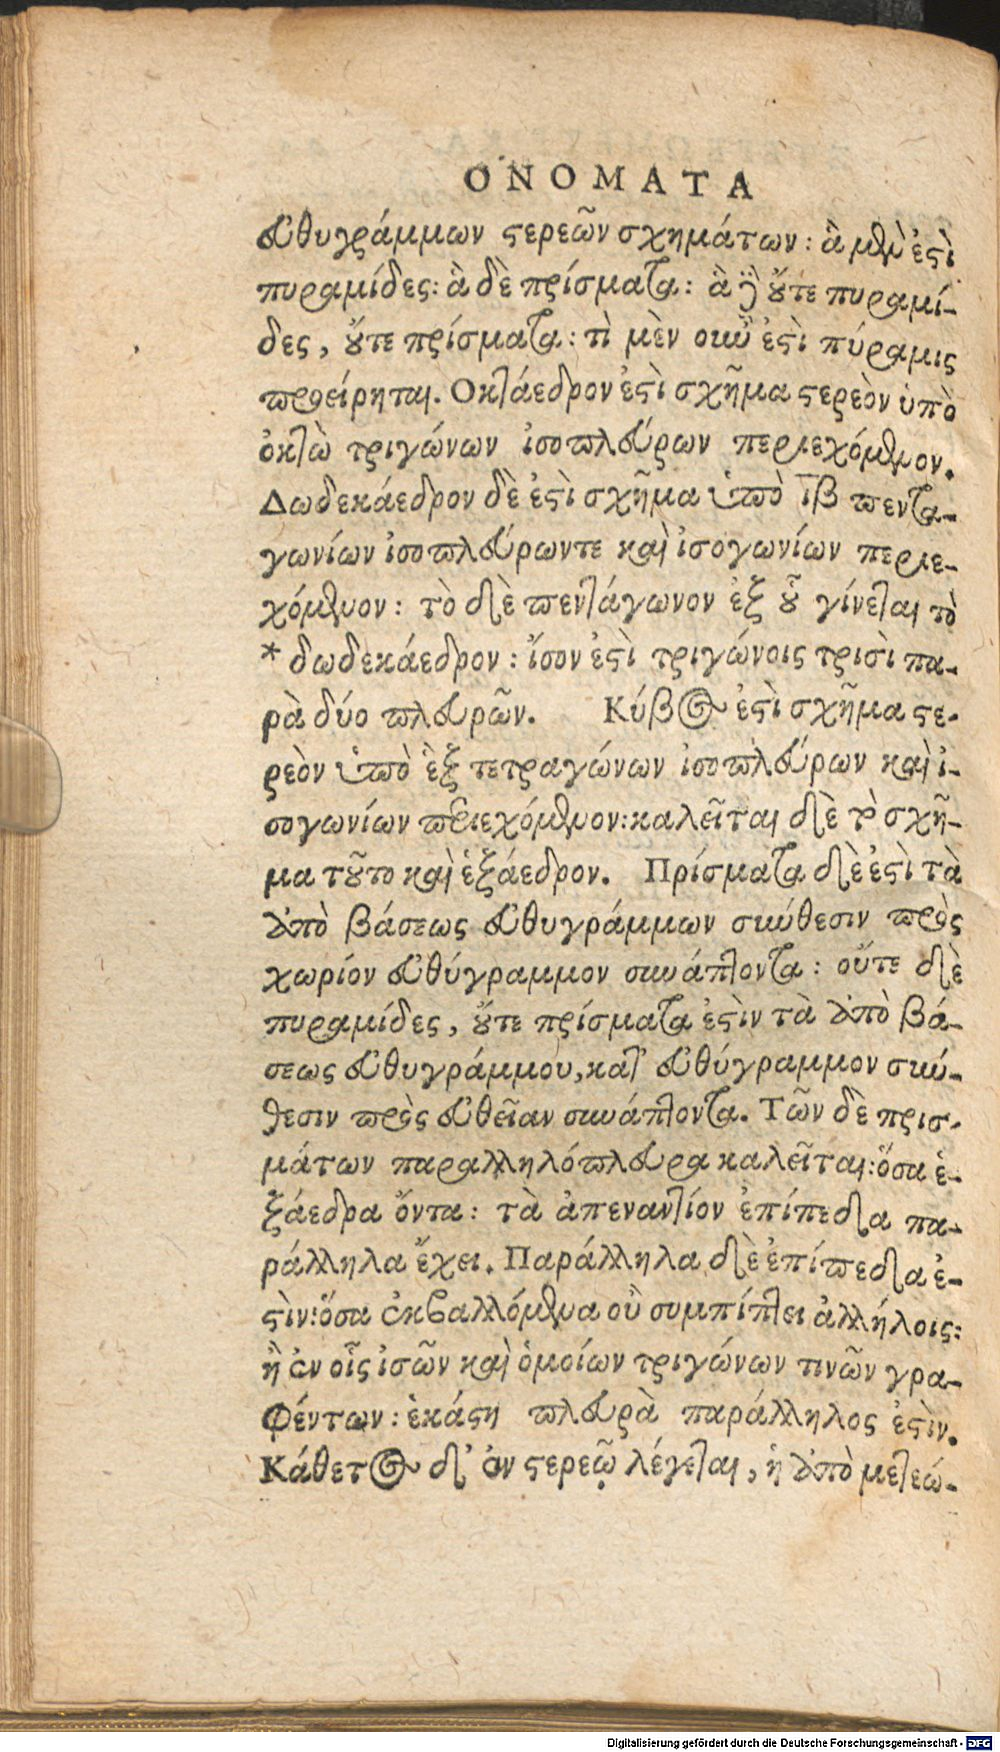 ΟΝΟΜΑΤΑ
εὐθυγράμμων στερεῶν σχημάτων: ἃ μὲν ἐστὶ
πυραμίδες: ἃ δὲ πρίσματα: ἃ δὲ οὔτε πυραμί-
δες, οὔτε πρίσματα: τὶ μὲν οὖν ἐστὶ πύραμις
προείρηται. Οκτάεδρον ἐστὶ σχῆμα στερεὸν ὑπὸ
ὀκτὼ τριγώνων ἰσοπλεύρων περιεχόμενον.
Δωδεκάεδρον δὲ ἐστὶ σχῆμα ὑπὸ ιβ πεντα-
γωνίων ἰσοπλεύρωντε καὶ ἰσογωνίων περιε-
χόμενον: τὸ δὲ πεντάγωνον ἐξ οὗ γίνεται τὸ
* δωδεκάεδρον: ἴσον ἐστὶ τριγώνοις τρισὶ πα-
ρὰ δύο πλευρῶν. Κύβος ἐστὶ σχῆμα στε-
ρεὸν ὑπὸ ἓξ τετραγώνων ἰσοπλεύρων καὶ ἰ-
σογωνίων περιεχόμενον: καλεῖται δὲ τὸ σχῆ-
μα τοῦτο καὶ ἑξάεδρον. Πρίσματα δὲ ἐστὶ τὰ
ἀπὸ βάσεως εὐθυγράμμων σύνθεσιν πρὸς
χωρίον εὐθύγραμμον συνάπτοντα: οὔτε δὲ
πυραμίδες, οὔτε πρίσματα ἐστὶν τὰ ἀπὸ βά-
σεως εὐθυγράμμου, κατ' εὐθύγραμμον σύν-
θεσιν πρὸς εὐθεῖαν συνάπτοντα. Τῶν δὲ πρισ-
μάτων παραλληλόπλευρα καλεῖται: ὅσα ἑ-
ξάεδρα ὄντα: τὰ ἀπεναντίον ἐπίπεδα πα-
ράλληλα ἔχει. Παράλληλα δὲ ἐπίπεδα ἐ-
στὶν: ὅσα ἐκβαλλόμενα οὐ συμπίπτει ἀλλήλοις:
ἢ ἐν οἷς ἰσῶν καὶ ὁμοίων τριγώνων τινῶν γρα-
φέντων: ἑκάστη πλευρὰ παράλληλος ἐστὶν.
Κάθετος δ' ἐν στερεῷ λέγεται, ἡ ἀπὸ μετεώ-
Digitalisierung gefördert durch die Deutsche Forschungsgemeinschaft - DFG